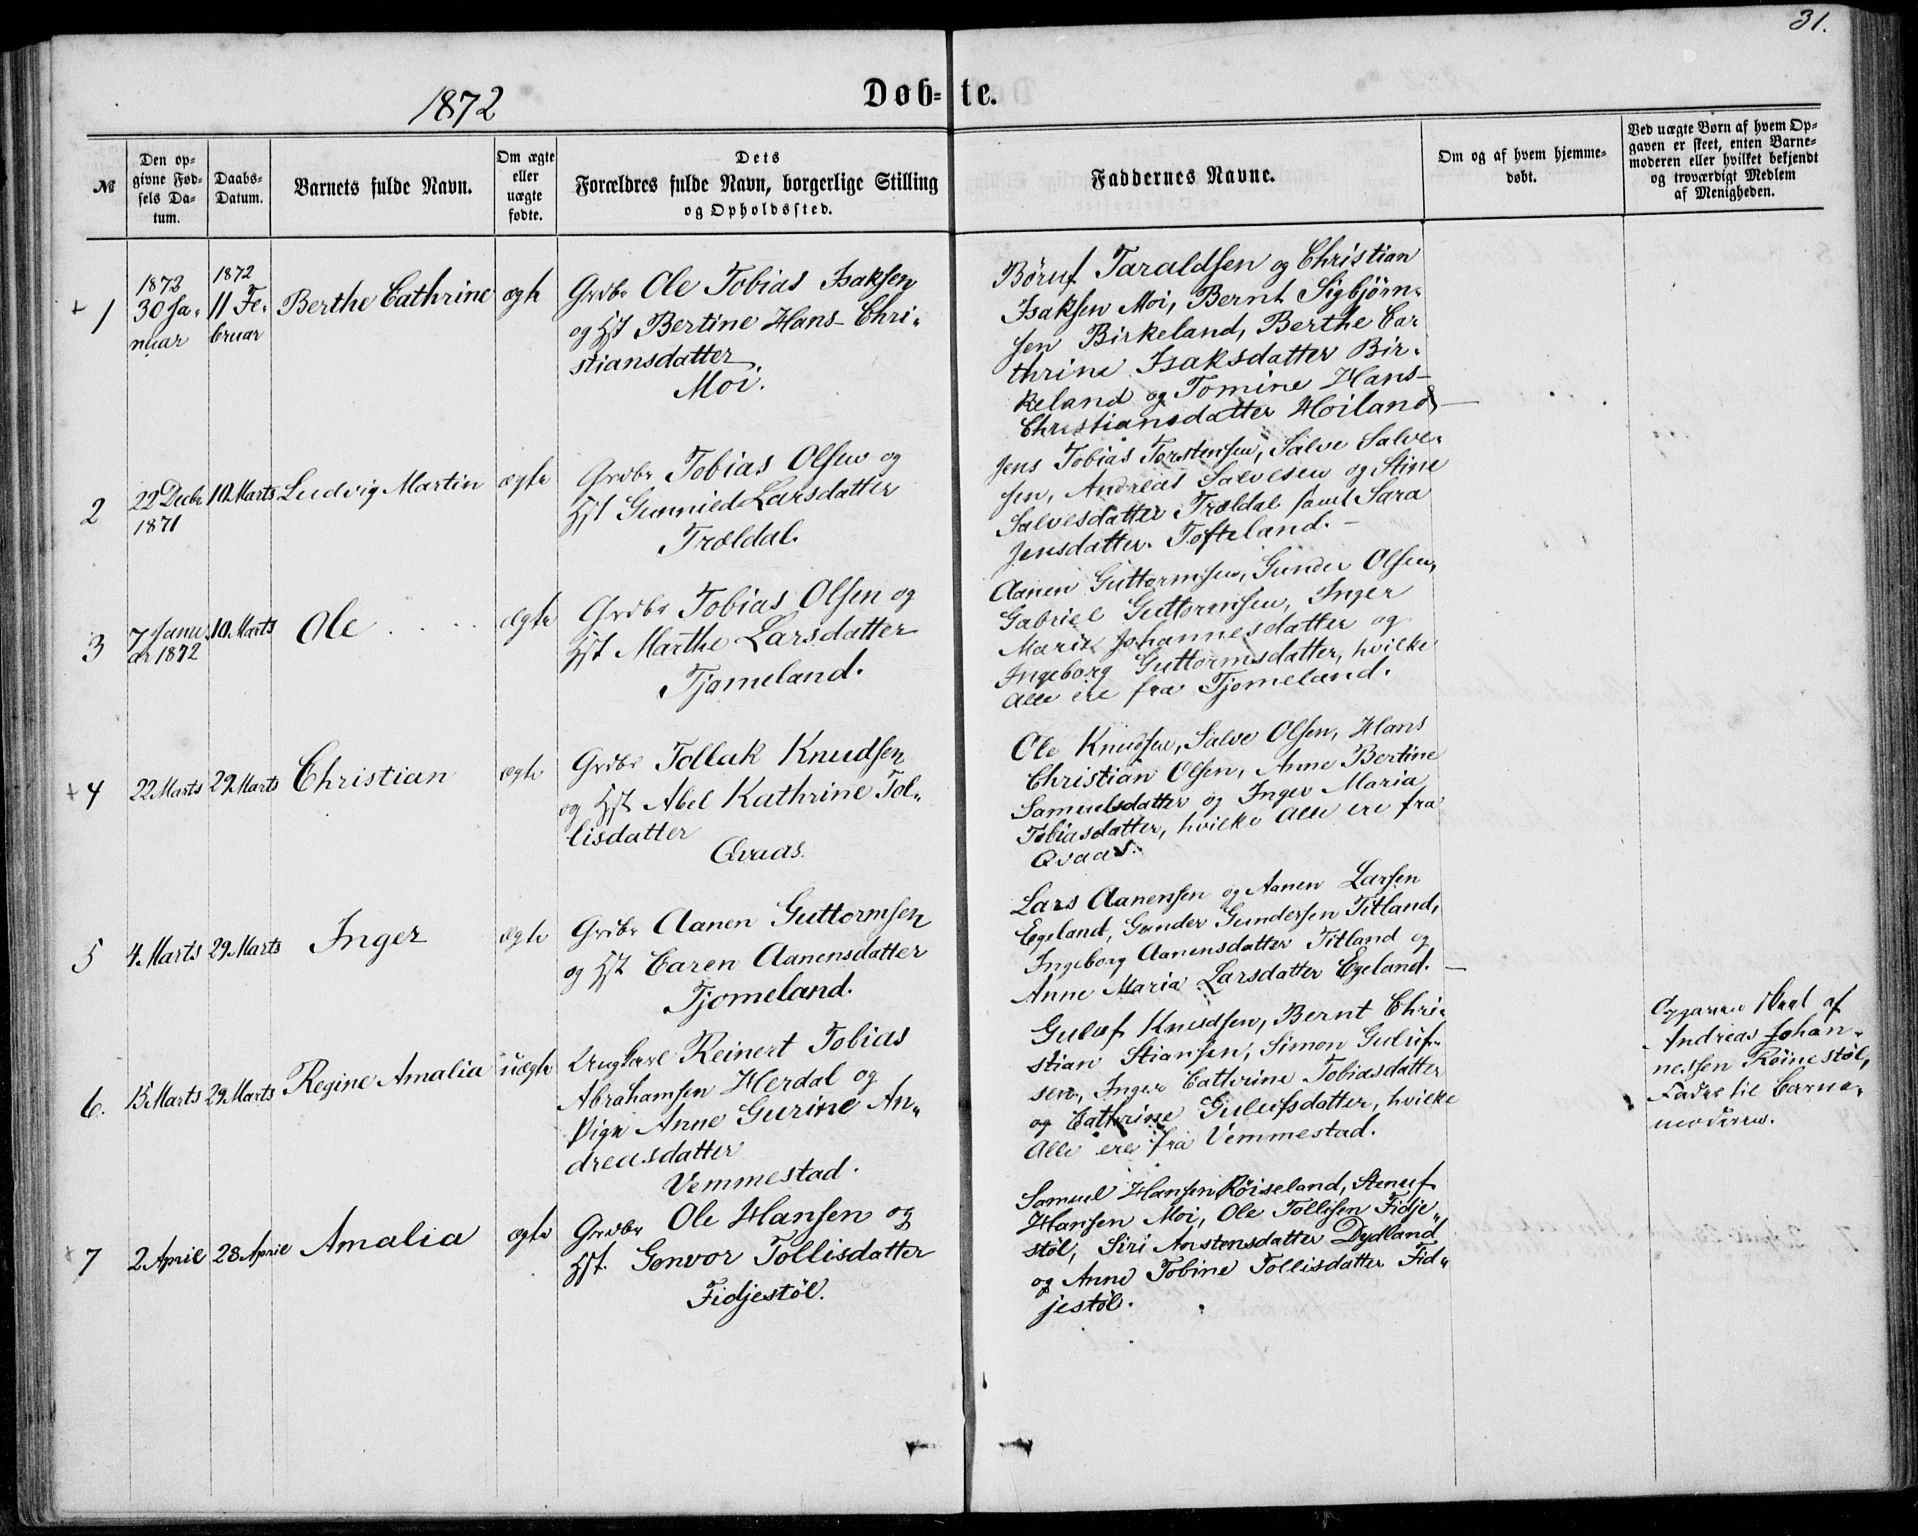 31.
1872
Døb=te.
№
Den op=
givne Fød=
sels Da=
tum.
Daabs=
Datum.
Barnets fulde Navn.
Om ægte
eller
uægte
fødte.
Dets
Forældres fulde Navn, borgerlige Stilling
og Opholdssted.
Faddernes Navne.
Om og af hvem hjemme=
døbt.
Ved uægte Børn af hvem Op=
gaven er skeet, enten Barne=
moderen eller hvilket bekjendt
og troværdigt Medlem
af Menigheden.
+ 1
1872
30 Ja-
nuar
1872
11 Fe-
bruar
Berthe Cathrine
ægte
Grdbr Ole Tobias Isaksen
og Hst Bertine Hans- Chri-
stiansdatter
Moi.
Børuf Taraldsen og Christian
Isaksen Moi, Bernt Sigbjørn-
sen Birkeland, Berthe Ca-
thrine Isaksdatter Bir-
keland og Tomine Hans-
Christiansdatter Høiland
2
22 Decbr
1871
10 Marts
Ludvig Martin
ægte
Grdbr Tobias Olsen og
Hst Gunnild Larsdatter
Trældal.
Jens Tobias Torstensen, Salve Salve-
sen, Andreas Salvesen og Stine
Salvesdatter Trældal samt Sara
Jensdatter Tofteland. -
3
7 Janu-
ar 1872
10 Marts
Ole
ægte
Grdbr Tobias Olsen og
Hst Marthe Larsdatter
Tjomeland.
Aanen Guttormsen, Gunder Olsen,
Gabriel Guttormsen, Inger
Marie Johannesdatter og
Ingeborg Guttormsdatter, hvilke
Alle ere fra Tjomeland.
+ 4
22 Marts
29 Marts
Christian
ægte
Grdbr Tollak Knudsen
og Hst Abel Kathrine Tol-
lisdatter
Qvaas.
Ole Knudsen, Salve Olsen, Hans
Christian Olsen, Anne Bertine
Samuelsdatter og Inger Maria
Tobiasdatter, hvilke Alle ere fra
Qvaas.
5
4 Marts
29 Marts
Inger
ægte
Grdbr Aanen Guttormsen
og Hst Caren Aanensdatter
Tjomeland.
Lars Aanensen og Aanen Larsen
Egeland, Gunder Gundersen Titland,
Ingeborg Aanensdatter Titland og
Anne Maria Larsdatter Egeland. -
6.
15 Marts
29 Marts
Regine Amalia
uægte
Ungkarl Reinert Tobias
Abrahamsen Herdal og
Pige Anne Gurine An-
dreasdatter
Vemmestad.
Guluf Knudsen, Bernt Chri-
stian Stiansen, Simon Guluf-
sen, Inger Cathrine Tobiasdatter
og Cathrine Gulufsdatter, hvilke
Alle ere fra Vemmestad.
Opgaven skeet af
Andreas Johan-
nessen Röinestøl,
Fader til Barne-
moderen.
+ 7
2 April
28 April
Amalia
ægte
Grdbr Ole Hansen og
Hst. Gonvor Tollisdatter
Fidjestøl.
Samuel Hansen Röiseland, Stenuf
Hansen Moi, Ole Tollisen Fidje-
støl, Siri Anstensdatter Dydland
og Anne Tobine Tollisdatter Fid-
jestøl.